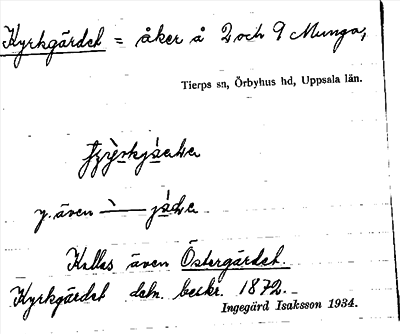 Kyrkgärdet = åker å 2 och 9 Munga,
Tierps sn, Örbyhus hd, Uppsala län.
y. även
Kallas även Östergärdet.
Kyrkgärdet dsbn. beskr. 1872.
Ingegärd Isaksson 1934.